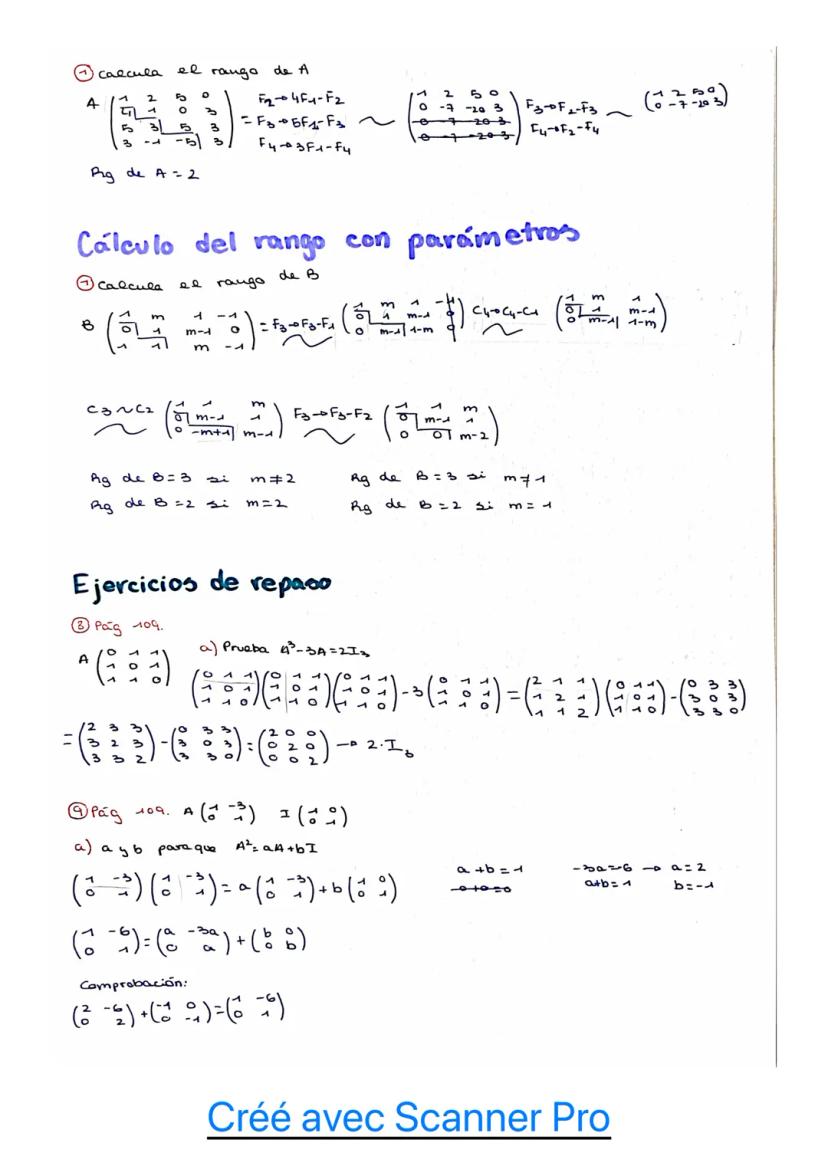 ① Calcula el rango de A
A ( 1 2 5 0 / 4 1 0 3 / 5 3 5 3 / 3 -1 -5 3 ) = F2→4F1-F2 F3→5F1-F3 F4→3F1-F4 ~ ( 1 2 5 0 / 0 -7 -20 3 / 0 -7 -20 3 / 0 -7 -20 3 ) F3→F2-F3 F4→F2-F4 ~ ( 1 2 5 0 / 0 -7 -20 3 )
Rg de A = 2
Cálculo del rango con parámetros
① Calcula el rango de B
B ( 1 m 1 -1 / 0 1 m-1 0 / 1 1 m -1 ) = F3→F3-F1 ~ ( 1 m 1 -1 / 0 1 m-1 0 / 0 m-1 1-m 0 ) C4→C4-C1 ~ ( 1 m 1 / 0 1 m-1 / 0 m-1 1-m )
C3~C2 ~ ( 1 1 m / 0 m-1 1 / 0 -m+1 m-1 ) F3→F3-F2 ~ ( 1 1 m / 0 m-1 1 / 0 0 m-2 )
Rg de B=3 si m≠2 Rg de B=3 si m≠1
Rg de B=2 si m=2 Rg de B=2 si m=1
Ejercicios de repaso
⑧ Pág 109.
A ( 0 1 1 / 1 0 1 / 1 1 0 ) a) Prueba A³-3A=2I₃
( 0 1 1 / 1 0 1 / 1 1 0 )( 0 1 1 / 1 0 1 / 1 1 0 )( 0 1 1 / 1 0 1 / 1 1 0 ) -3 ( 0 1 1 / 1 0 1 / 1 1 0 ) = ( 2 1 1 / 1 2 1 / 1 1 2 )( 0 1 1 / 1 0 1 / 1 1 0 ) - ( 0 3 3 / 3 0 3 / 3 3 0 )
= ( 2 3 3 / 3 2 3 / 3 3 2 ) - ( 0 3 3 / 3 0 3 / 3 3 0 ) = ( 2 0 0 / 0 2 0 / 0 0 2 ) → 2·I₃
⑨ Pág 109. A ( 1 -3 / 0 1 ) I ( 1 0 / 0 1 )
a) a y b para que A²=aA+bI
( 1 -3 / 0 1 )( 1 -3 / 0 1 ) = a ( 1 -3 / 0 1 ) + b ( 1 0 / 0 1 ) a+b=1 0+0=0 -3a=-6 → a=2 a+b=1 b=-1
( 1 -6 / 0 1 ) = ( a -3a / 0 a ) + ( b 0 / 0 b )
Comprobación:
( 2 -6 / 0 2 ) + ( -1 0 / 0 -1 ) = ( 1 -6 / 0 1 )
Créé avec Scanner Pro